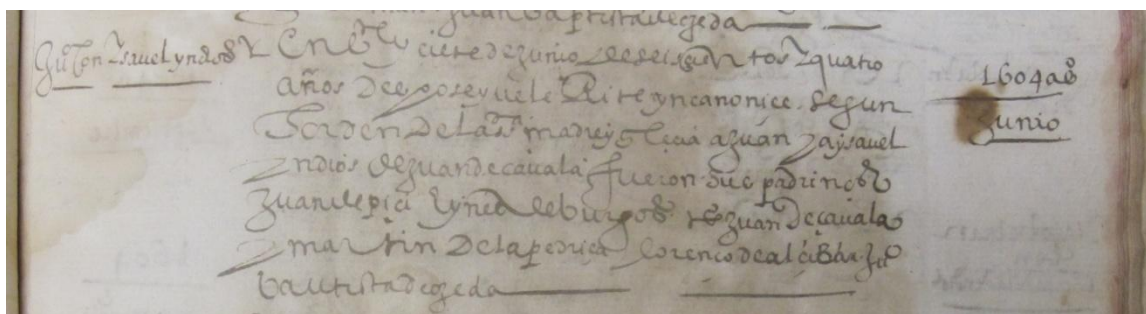 Juan baptista de ojeda
Ju° con Ysavel yndios
En siete de junio de seiscientos y quatro
años despose y vele Rite yn canonice segun
orden de la sta madre yglecia a juan y a ysavel
yndios de juan de cavala fueron sus padrinos
juan de y ynes de burgos ts juan de cavala
y martin de la pedriça lorenço de Ju°
bautista de ojeda
1604 a°s
junio